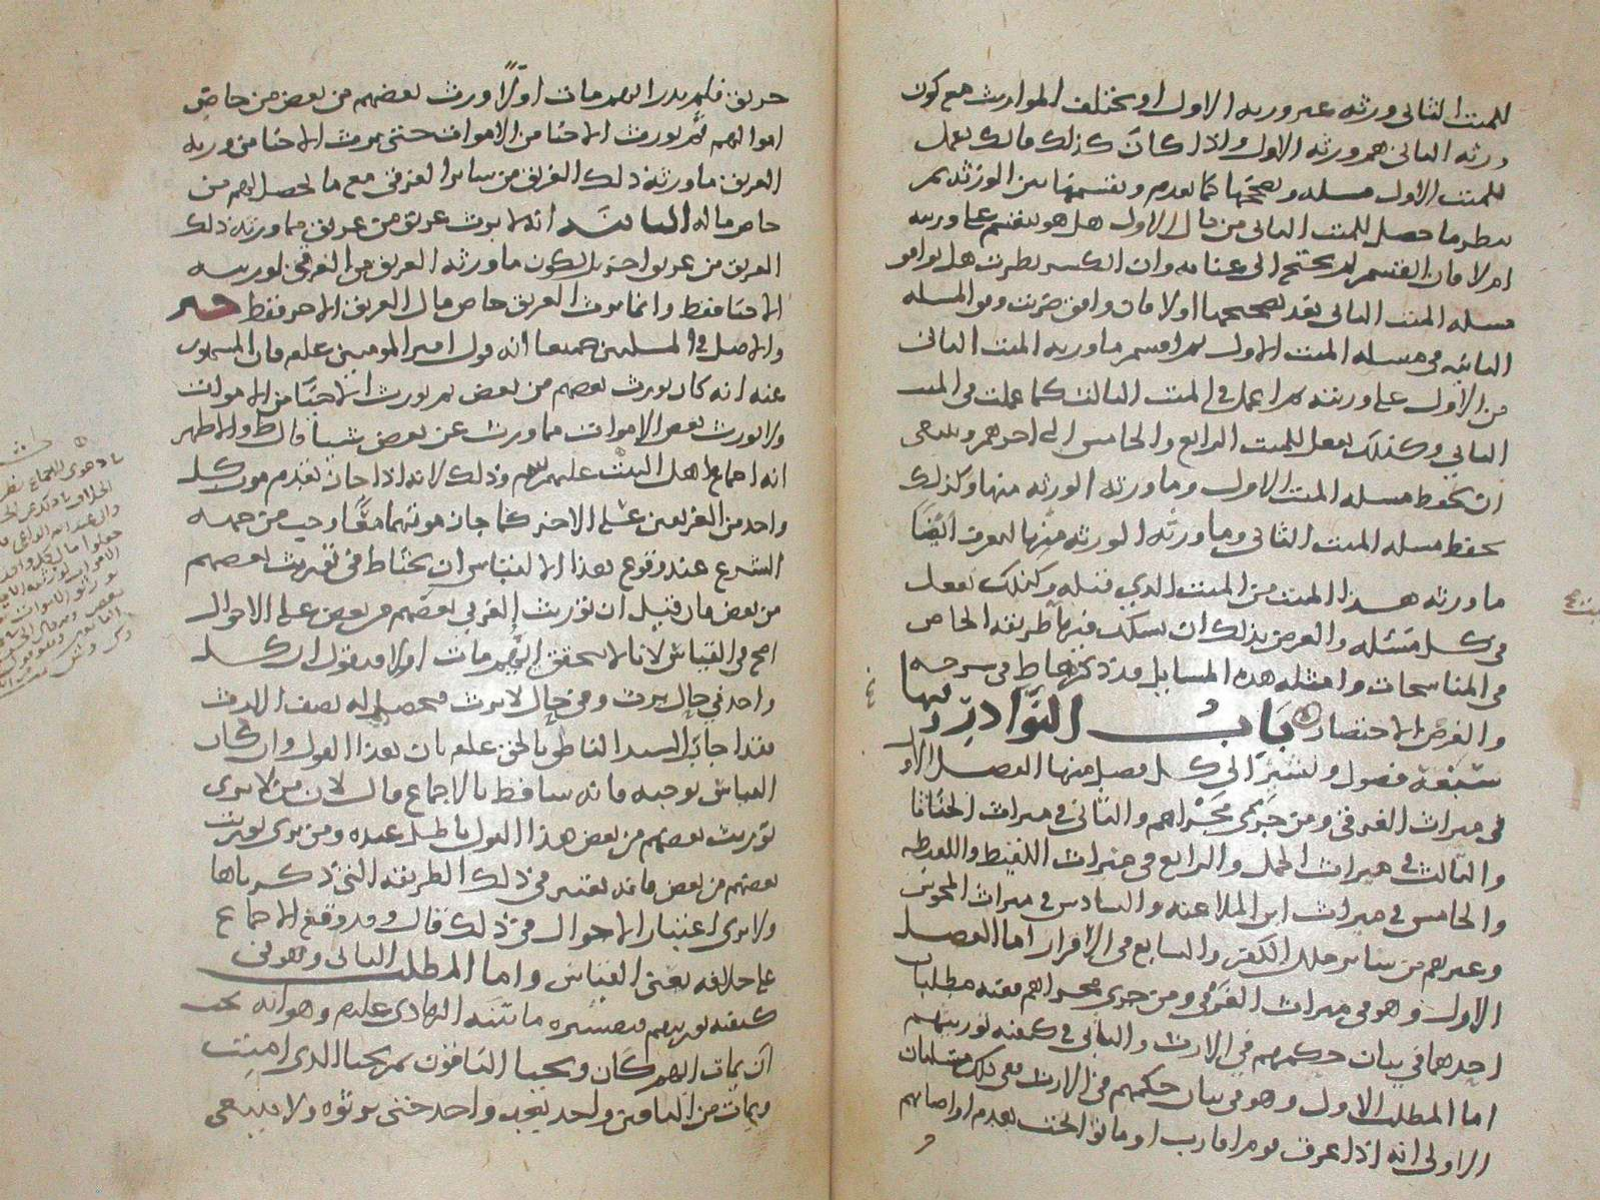 للميت الثاني ورثه غير ورثه الاول او يختلف المواريث مع كون
ورثه الثاني هم ورثه الاول واذا كان كذلك فانك تعمل
للميت الاول مسله وتصححها كما تقدم وتقسمها بين الورثه ثم
تنظر ما حصل للميت الثاني من مال الاول هل هو ينقسم على ورثته
ام لا فان انقسم لم يحتج الى عنايه وان انكسر نظرت هل توافق
مسله الميت الثاني بعد تصحيحها اولا فان وافق ضربت وفق المسله
الثانيه في مسله الميت الاول ثم اقسم ما ورثه الميت الثاني
من الاول على ورثته ثم اعمل في الميت الثالث كما عملت في الميت
الثاني وكذلك تفعل للميت الرابع والخامس الى اخرهم وينبغي
ان تحفظ مسله الميت الاول وما ورثه الورثه منها وكذلك
تحفظ مسله الميت الثاني وما ورثه الورثه منها لتعرف ايضا
ما ورثه هذا الميت من الميت الذي قبله وكذلك تفعل
في كل مسئله والغرض بذلك ان يسلك فيها طريقه الحاص
في المناسخات وامثله هذه المسايل قد ذكرها ط في شرحه
والغرض الاختصار باب النوادر فيها
سبعة فصول ونشير الى كل فصل منها الفصل الاول
في ميراث الغرقى ومن جرى مجراهم والثاني في ميراث الخناثا
والثالث في ميراث الحمل والرابع في ميراث اللقيط واللقيطه
والخامس في ميراث ابن الملاعنه والسادس في ميراث المجوس
وغيرهم من سائر ملل الكفر والسابع في الاقرار اما الفصل
الاول وهو في ميراث الغرقى ومن جرى مجراهم ففيه مطلبان
احدهما في بيان حكمهم في الارث والثاني في كيفيه توريثهم
اما المطلب الاول وهو في بيان حكمهم في الارث ففي ذلك مسئلتان
الاولى انه اذا غرق قوم اقارب او ماتوا تحت هدم او اصابهم
حريق فلم يدر ايهم مات اولا ورث بعضهم من بعض من خاص
اموالهم ثم يورث الاحيا من الاموات حتى يرث الاحيا من ورثه
الغريق ما ورثه ذلك الغريق من سائر الغرقى مع ما يحصل لهم من
خاص ماله الثانيه انه لا يرث غريق من غريق مما ورثه ذلك
الغريق من غريق اخر بل يكون ما ورثه الغريق من الغرقى لورثته
الاحيا فقط وانما يرث الغريق خاص مال الغريق الاخر فقط
والاصل في المسلتين جميعا انه قول امير المومنين علم فان المشهور
عنه انه كان يورث بعضهم من بعض ثم يورث الاحيا من الاموات
ولا يورث بعض الاموات مما ورث عن بعض شيا قال ط والاظهر
انه اجماع اهل البيت عليهم السلم وذلك لانه اذا جاز تقدم موت كل
واحد من الغريقين على الاخر كما جاز موتهما معًا وجب من جهه
الشرع عند وقوع هذا الالتباس ان يحتاط في توريث بعضهم
من بعض فان قيل ان توريث الغرقى بعضهم من بعض على الاحوال
اصح في القياس لانا لا نتحقق ايهم مات اولا فنقول ان كل
واحد في حال يرث وفي حال لا يرث فيحصل له نصف الارث
فقد اجاب السيد الناطق بالحق علم بان هذا القول وان كان
القياس يوجبه فانه ساقط بالاجماع قال لان من لا يرى
توريث بعضهم من بعض هذا القول باطل عنده ومن يرى توريث
بعضهم من بعض فانه يعتبر في ذلك الطريقه التي ذكرناها
ولا يرى اعتبار الاحوال في ذلك قال وقد وقع الاجماع
على خلافه يعني القياس واما المطلب الثاني وهو في
كيفيه توريثهم فتفسيره ما بينه الهادي علم وهو انه يجب
ان يمات ايهم كان ويحيا الباقون ثم يحيا الذي اميت
ويمات من الباقين واحد بعد واحد حتى يرثوه ولا ينبغي